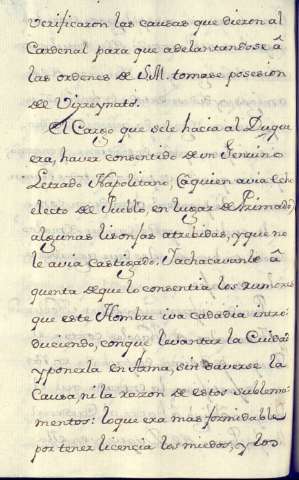 verificaron las causas que dieron al
Cardenal para que adelantandose â
las ordenes de S.M. tomase posesion
de Virreynato.
El Cargo que sele hacia al Duque
era, haver consentido de un Genuino
Letrado Napolitano, (aquien avia
electo de Pueblo, en lugar de Primado)
algunas lisonjas atrebidas, y que no
le avia castigado. Iachacavanle â
quenta de que lo consentia los rumores
que este Hombre iva cadadia intro
duciendo, conque levantar la Ciudad
y ponerla en Arma, sin saverse la
Causa, ni la razon de estos
mentos: loque era mas formidable
por tener licencia los miedos, y los